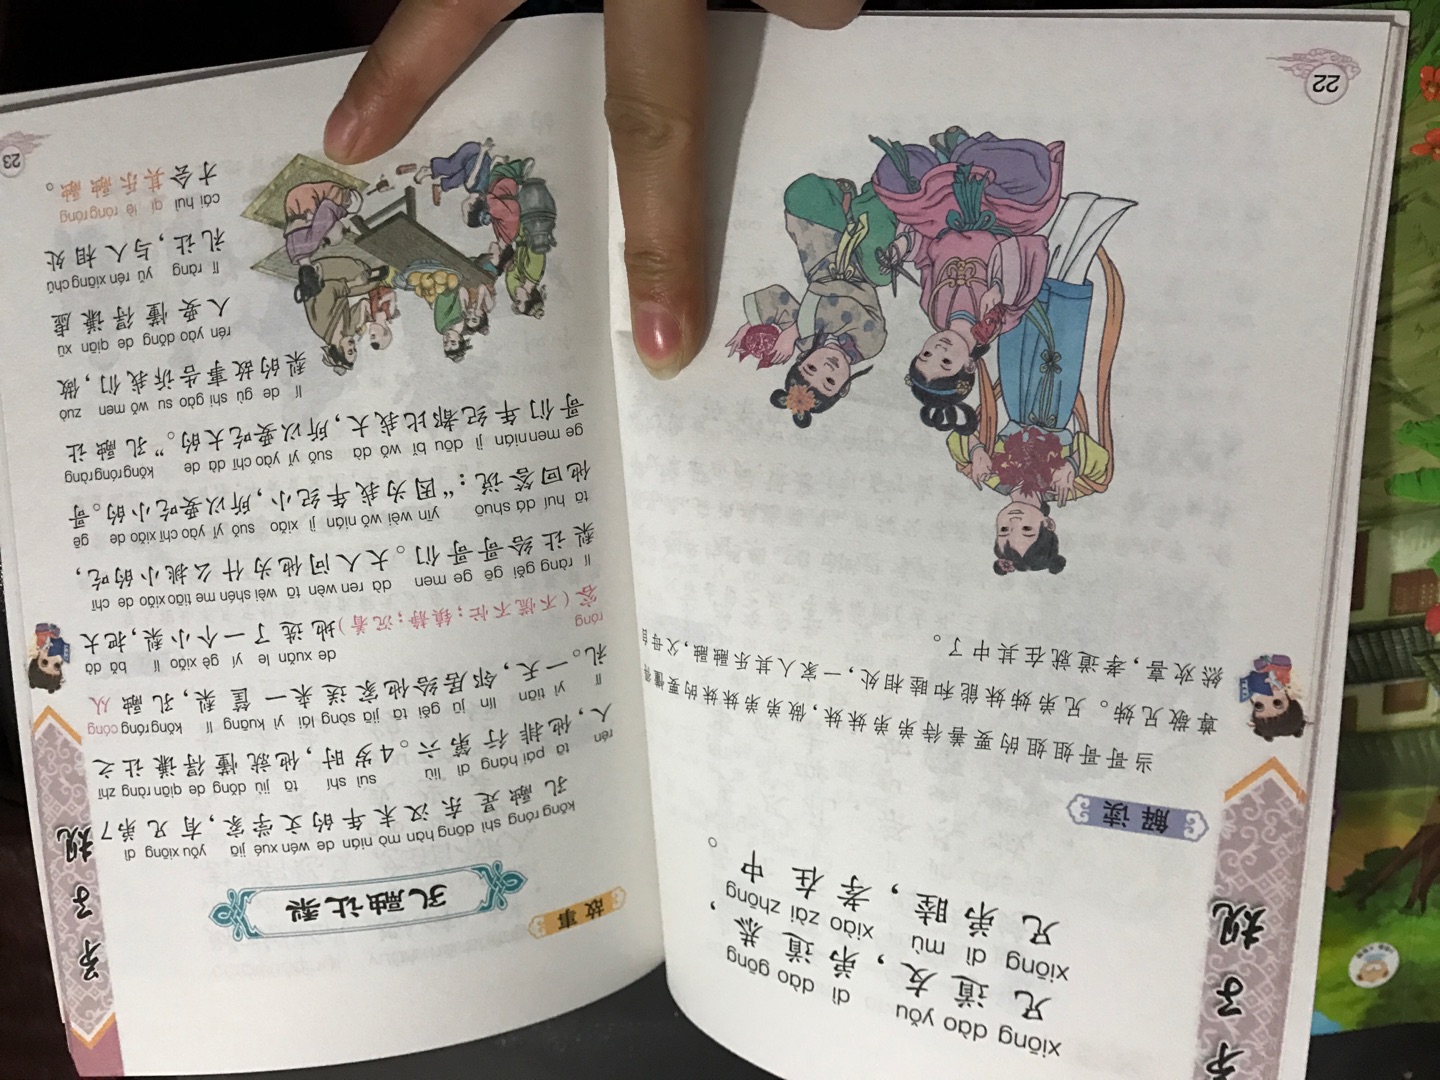 弟子规
xiōng dào yǒu dì dào gōng
兄道友，弟道恭，
xiōng dì mù xiào zài zhōng
兄弟睦，孝在中。
解读
当哥哥姐姐的要善待弟弟妹妹，做弟弟妹妹的要懂得
尊敬兄姊。兄弟姊妹能和睦相处，一家人其乐融融，父母自
然欢喜，孝道就在其中了。
22
弟子规
故事
孔融让梨
kǒng róng shì dōng hàn mò nián de wén xué jiā yǒu xiōng dì
孔融是东汉末年的文学家，有兄弟7
rén tā pái háng dì liù suì shí tā jiù dǒng de qiān ràng zhī
人，他排行第六。4岁时，他就懂得谦让之
lǐ yì tiān lín jū gěi tā jiā sòng lái yì kuāng lí kǒng róng cóng
礼。一天，邻居给他家送来一筐梨，孔融从
róng de xuǎn le yí gè xiǎo lí bǎ dà
容（不慌不忙；镇静；沉着）地选了一个小梨，把大
lí ràng gěi gē ge men dà ren wèn tā wèi shén me tiāo xiǎo de chī
梨让给哥哥们。大人问他为什么挑小的吃，
tā huí dá shuō yīn wèi wǒ nián jì xiǎo suǒ yǐ yào chī xiǎo de gē
他回答说：“因为我年纪小，所以要吃小的。哥
ge men nián jì dōu bǐ wǒ dà suǒ yǐ yào chī dà de kǒng róng ràng
哥们年纪都比我大，所以要吃大的。”孔融让
lí de gù shi gào su wǒ men zuò
梨的故事告诉我们，做
rén yào dǒng de qiān xū
人要懂得谦虚
lǐ ràng yǔ rén xiāng chǔ
礼让，与人相处
cái huì qí lè róng róng
才会其乐融融。
23